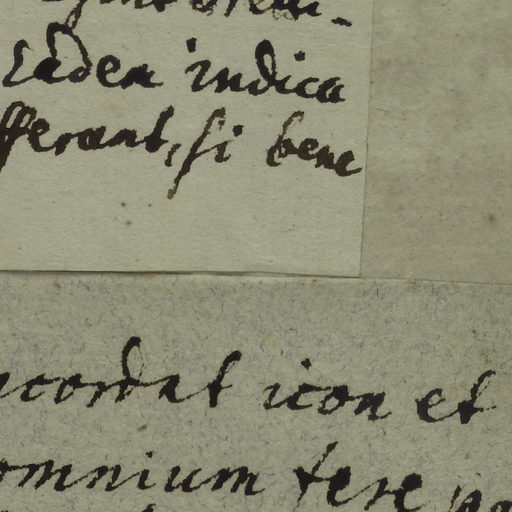 Eadem indica
fferant, si bene
ncordat icon et
omnium fere